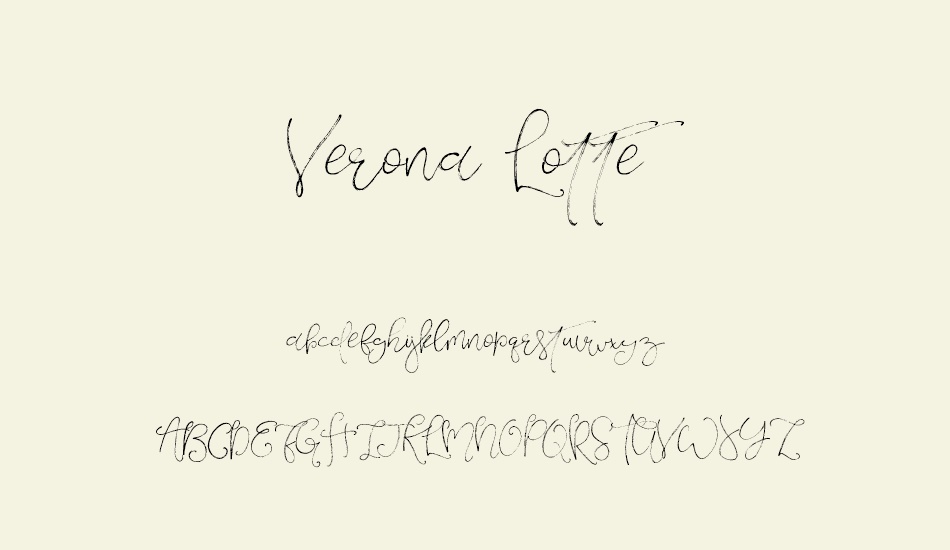 Verona Lotte
abcdefghijklmnopqrstuvwxyz
ABCDEFGHIJKLMNOPQRSTUVWXYZ